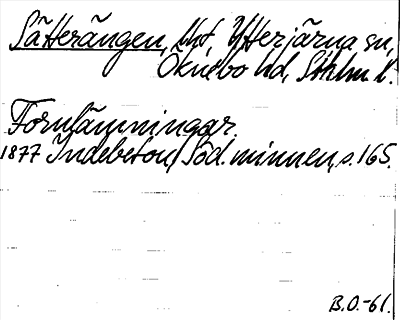 Sätterängen, lht, Ytterjärna sn,
Öknebo hd, Sthlm l.
Fornlämningar.
1877 Indebetou, Söd. minnen, s. 165.
B.O.-61.